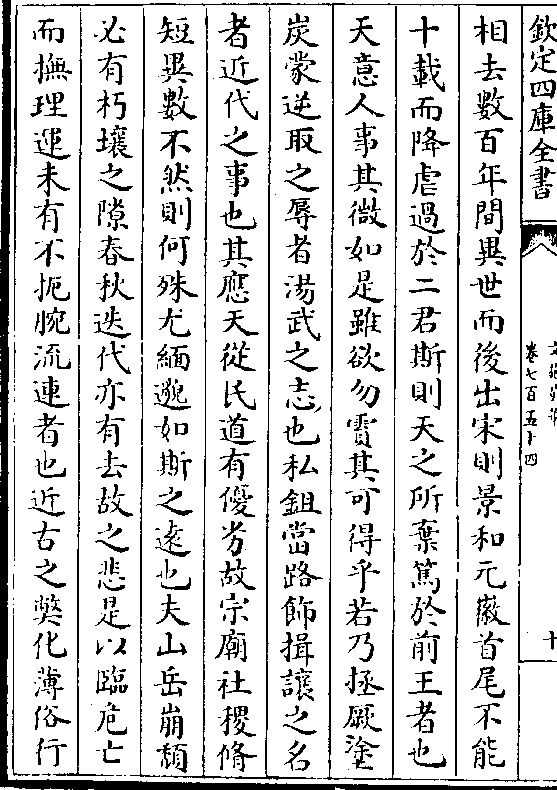 欽定四庫全書
卷七百五十四
十
相去數百年間異世而後出宋則景和元徽首尾不能
十載而降虐過於二君斯則天之所棄篤於前王者也
天意人事其微如是雖欲勿霣其可得乎若乃拯厥塗
炭蒙逆取之辱者湯武之志也私鉏當路飾揖讓之名
者近代之事也其應天從民道有優劣故宗廟社稷脩
短異數不然則何殊尤緬邈如斯之遠也夫山岳崩頽
必有朽壤之隙春秋迭代亦有去故之悲是以臨危亡
而撫理運未有不扼腕流連者也近古之弊化薄俗行